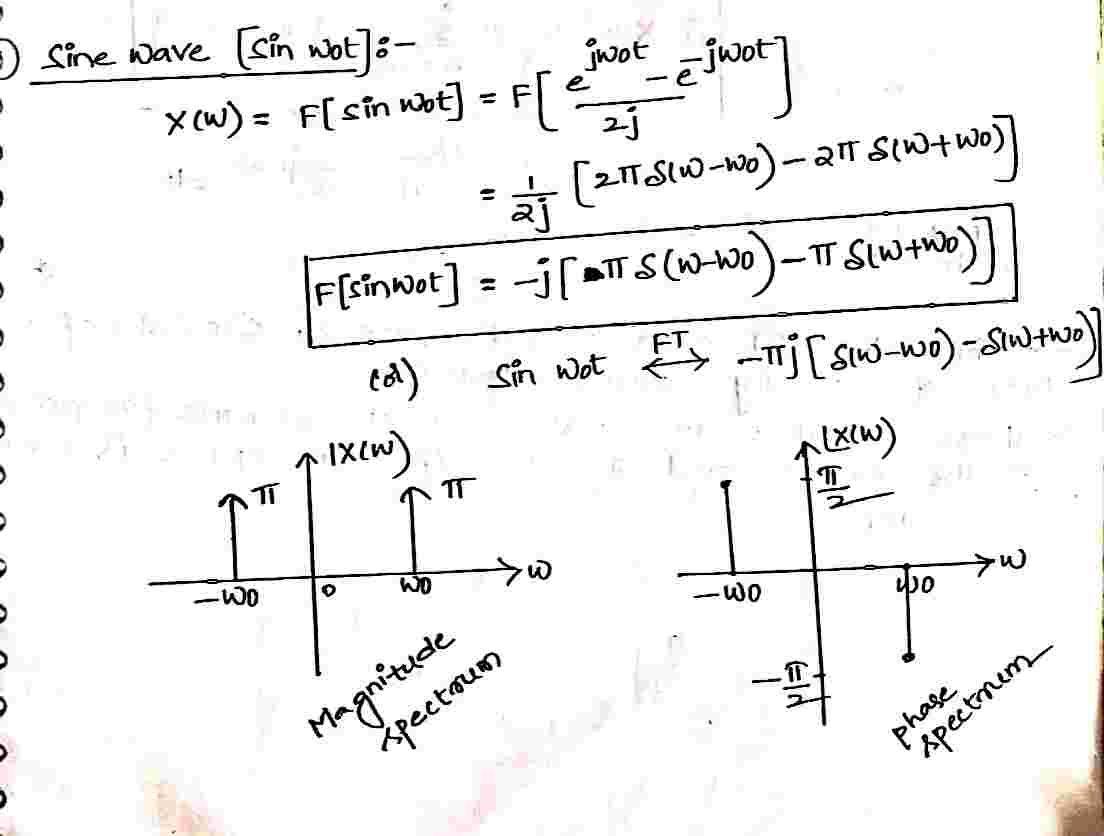 Sine wave [Sin wot]:-
X(w) = F[sin wot] = F[(e^jwot - e^-jwot)/2j]
= 1/2j [2π δ(w-wo) - 2π δ(w+wo)]
F[sinwot] = -j[π δ(w-wo) - π δ(w+wo)]
(or) Sin wot ⟷FT -πj[δ(w-wo) - δ(w+wo)]
|X(w)
π
π
-wo
0
wo
w
Magnitude
spectrum
∠X(w)
π/2
-wo
wo
w
-π/2
phase
spectrum